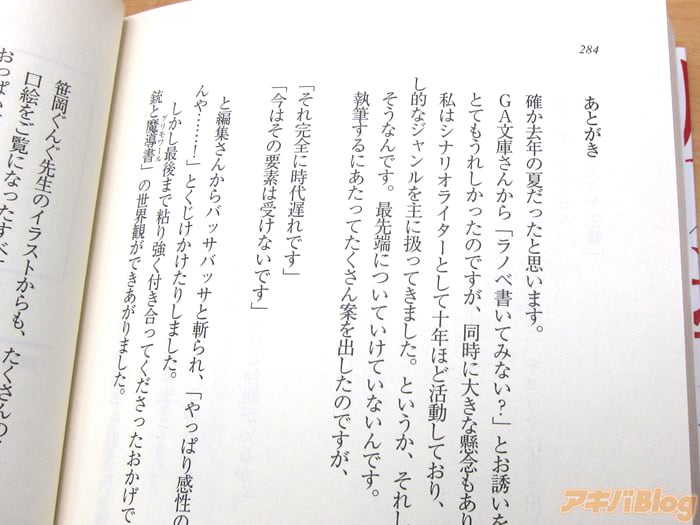 284
あとがき
確か去年の夏だったと思います。
GA文庫さんから「ラノベ書いてみない？」とお誘いを
とてもうれしかったのですが、同時に大きな懸念もあり
私はシナリオライターとして十年ほど活動しており、
し的なジャンルを主に扱ってきました。というか、それし
そうなんです。最先端についていけていないんです。
執筆するにあたってたくさん案を出したのですが、
「それ完全に時代遅れです」
「今はその要素は受けないです」
と編集さんからバッサバッサと斬られ、「やっぱり感性の
んや……！」とくじけかけたりしました。
しかし最後まで粘り強く付き合ってくださったおかげで
グリモワール
銃と魔導書」の世界観ができあがりました。
笹岡ぐんぐ先生のイラストからも、たくさんの
口絵をご覧になったすべ
おっぱい
アキバBlog